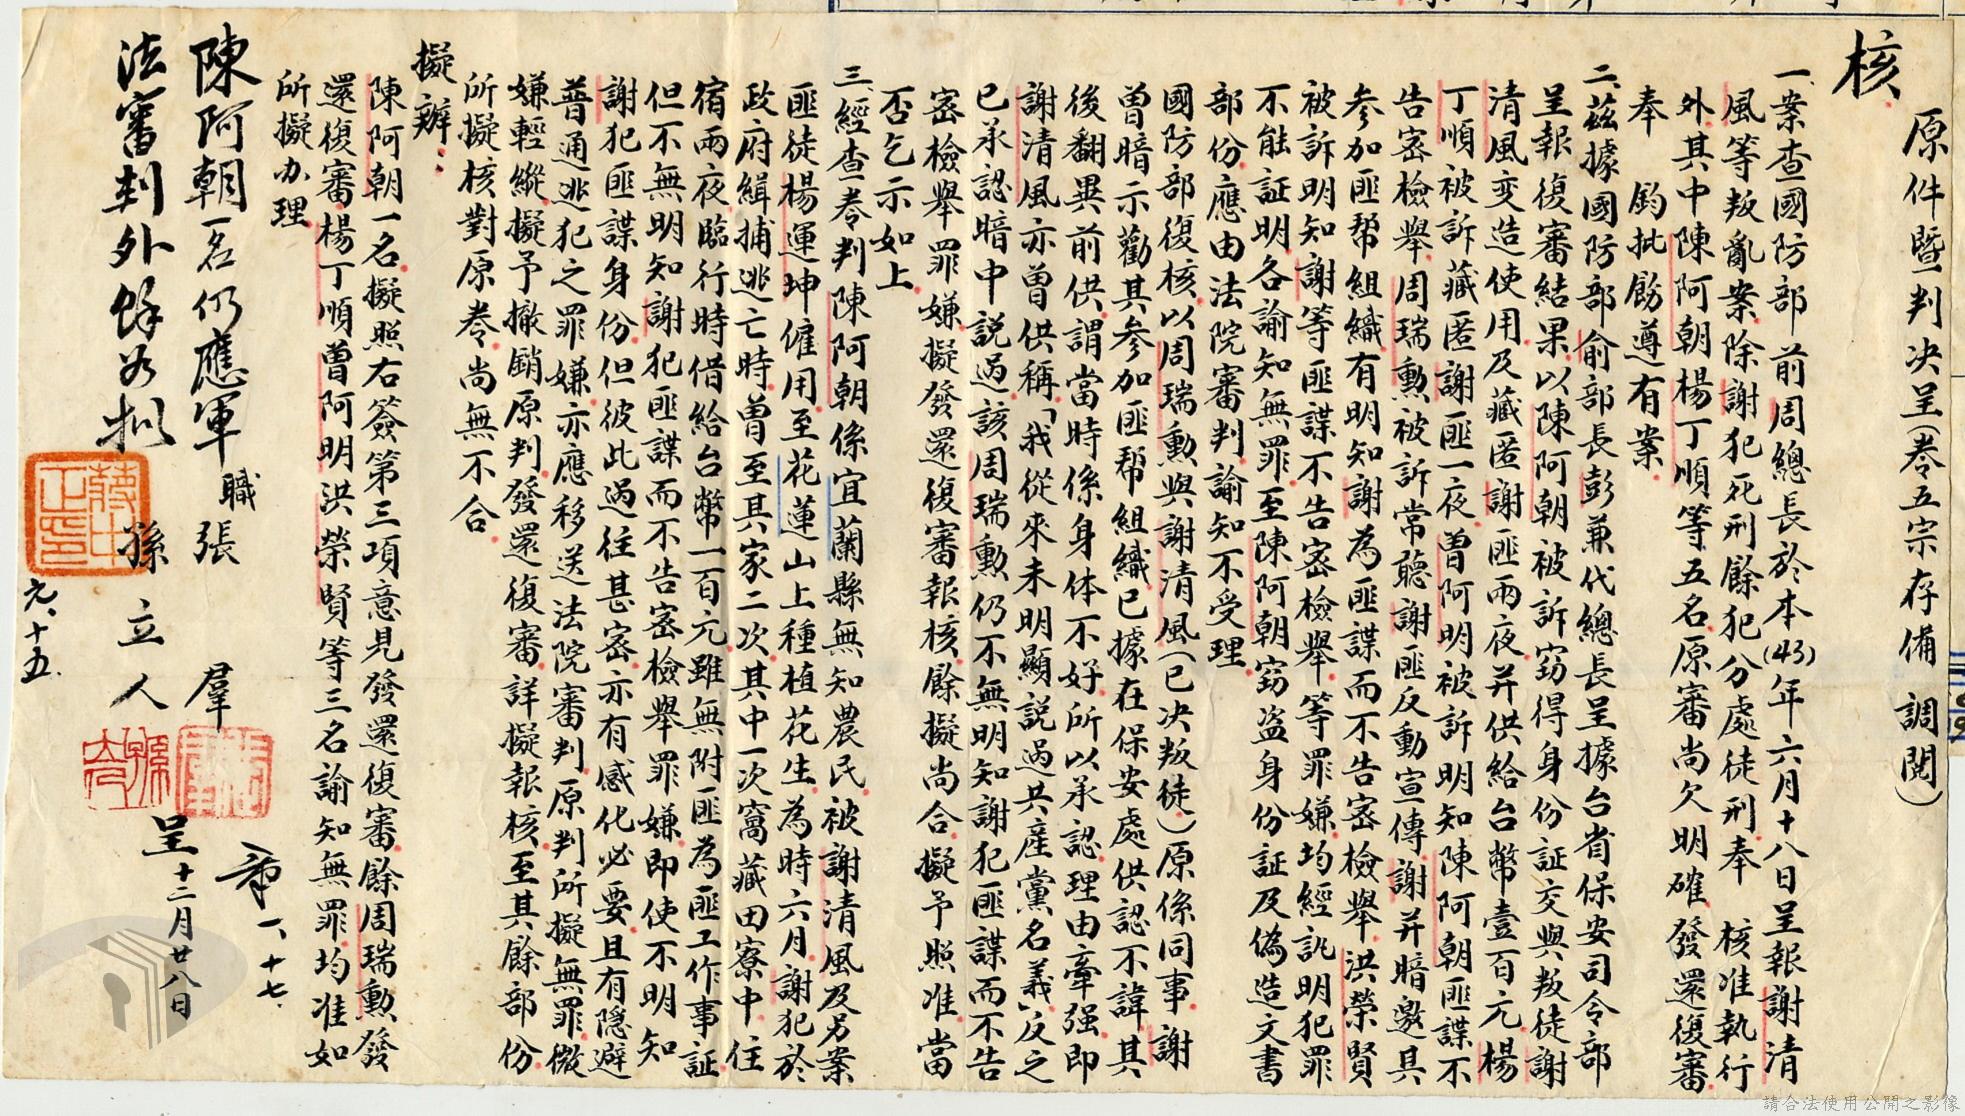 原件暨判决呈(卷五宗存備 調閱)
核
一、案查國防部 前周總長於本(43)年六月十八日呈報謝清
風等叛亂案除謝犯死刑餘犯分處徒刑奉 核准執行
外其中陳阿朝楊丁順等五名原審尚欠明確發還復審
奉 鈞批飭遵有案
二、茲據國防部俞部長彭兼代總長呈據台省保安司令部
呈報復審結果以陳阿朝被訴窃得身份証交與叛徒謝
清風变造使用及藏匿謝匪兩夜并供給台幣壹百元楊
丁順被訴藏匿謝匪一夜曾阿明被訴明知陳阿朝匪諜不
告密檢舉周瑞勳被訴常聽謝匪反動宣傳謝并暗邀其
参加匪帮組織有明知謝為匪諜而不告密檢舉洪榮賢
被訴明知謝等匪諜不告密檢舉等罪嫌均經訊明犯罪
不能証明各諭知無罪至陳阿朝窃盗身份証及偽造文書
部份應由法院審判諭知不受理
國防部復核以周瑞勳與謝清風(已决叛徒)原係同事謝
曾暗示勸其参加匪帮組織已據在保安處供認不諱其
後翻異前供謂當時係身体不好所以承認理由牽强即
謝清風亦曾供稱「我從來未明顯説過共産黨名義」反之
已承認暗中説過該周瑞勳仍不無明知謝犯匪諜而不告
密檢舉罪嫌擬發還復審報核餘擬尚合擬予照准當
否乞示如上
三、經查卷判陳阿朝係宜蘭縣無知農民被謝清風及另案
匪徒楊運坤僱用至花蓮山上種植花生為時六月謝犯於
政府緝捕逃亡時曾至其家二次其中一次窩藏田寮中住
宿兩夜臨行時借給台幣一百元雖無附匪為匪工作事証
但不無明知謝犯匪諜而不告密檢舉罪嫌即使不明知
謝犯匪諜身份但彼此過往甚密亦有感化必要且有隱避
普通逃犯之罪嫌亦應移送法院審判原判所擬無罪微
嫌輕縱擬予撤銷原判發還復審詳擬報核至其餘部份
所擬核對原卷尚無不合
擬辦：
陳阿朝一名擬照右簽第三項意見發還復審餘周瑞勳發
還復審楊丁順曾阿明洪榮賢等三名諭知無罪均准如
所擬办理
職 張 羣
孫 立 人 呈 十二月廿八日
一、十七、
陳阿朝一名仍應軍
法審判外餘如擬
蔣中正印
元、十五、
請合法使用公開之影像